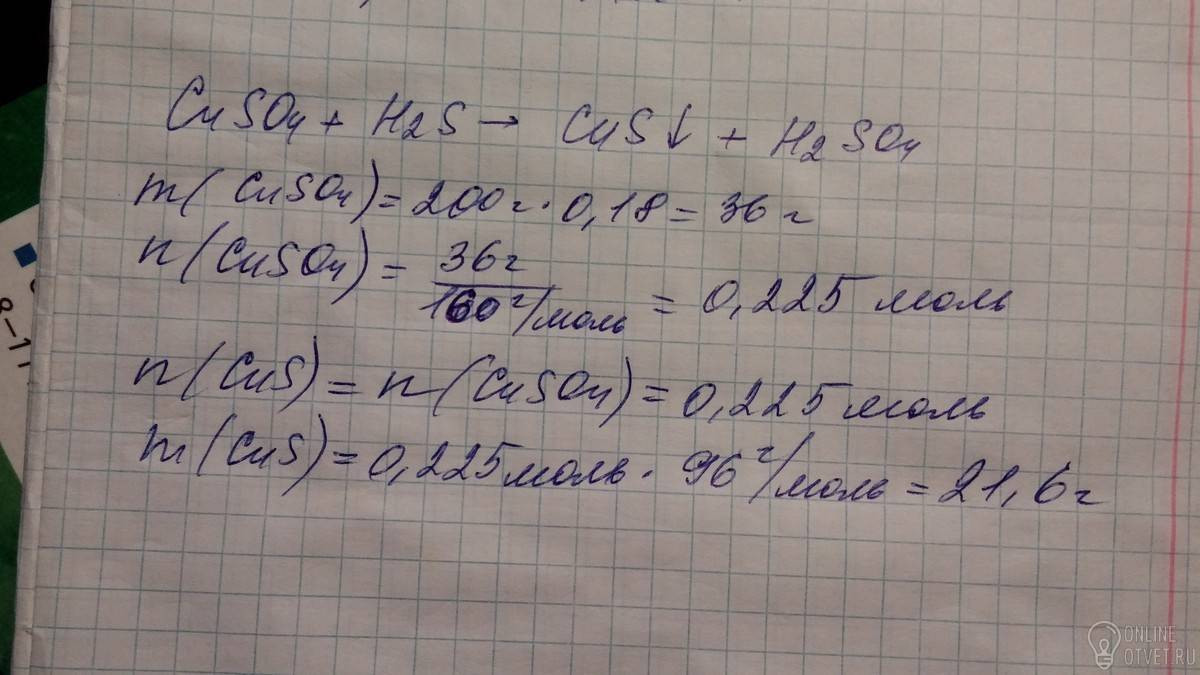 CuSO4 + H2S → CuS↓ + H2SO4
m(CuSO4) = 200г · 0,18 = 36 г
n(CuSO4) = 36г / 160 г/моль = 0,225 моль
n(CuS) = n(CuSO4) = 0,225 моль
m(CuS) = 0,225 моль · 96 г/моль = 21,6 г
8-11
ONLINE
OTVET.RU